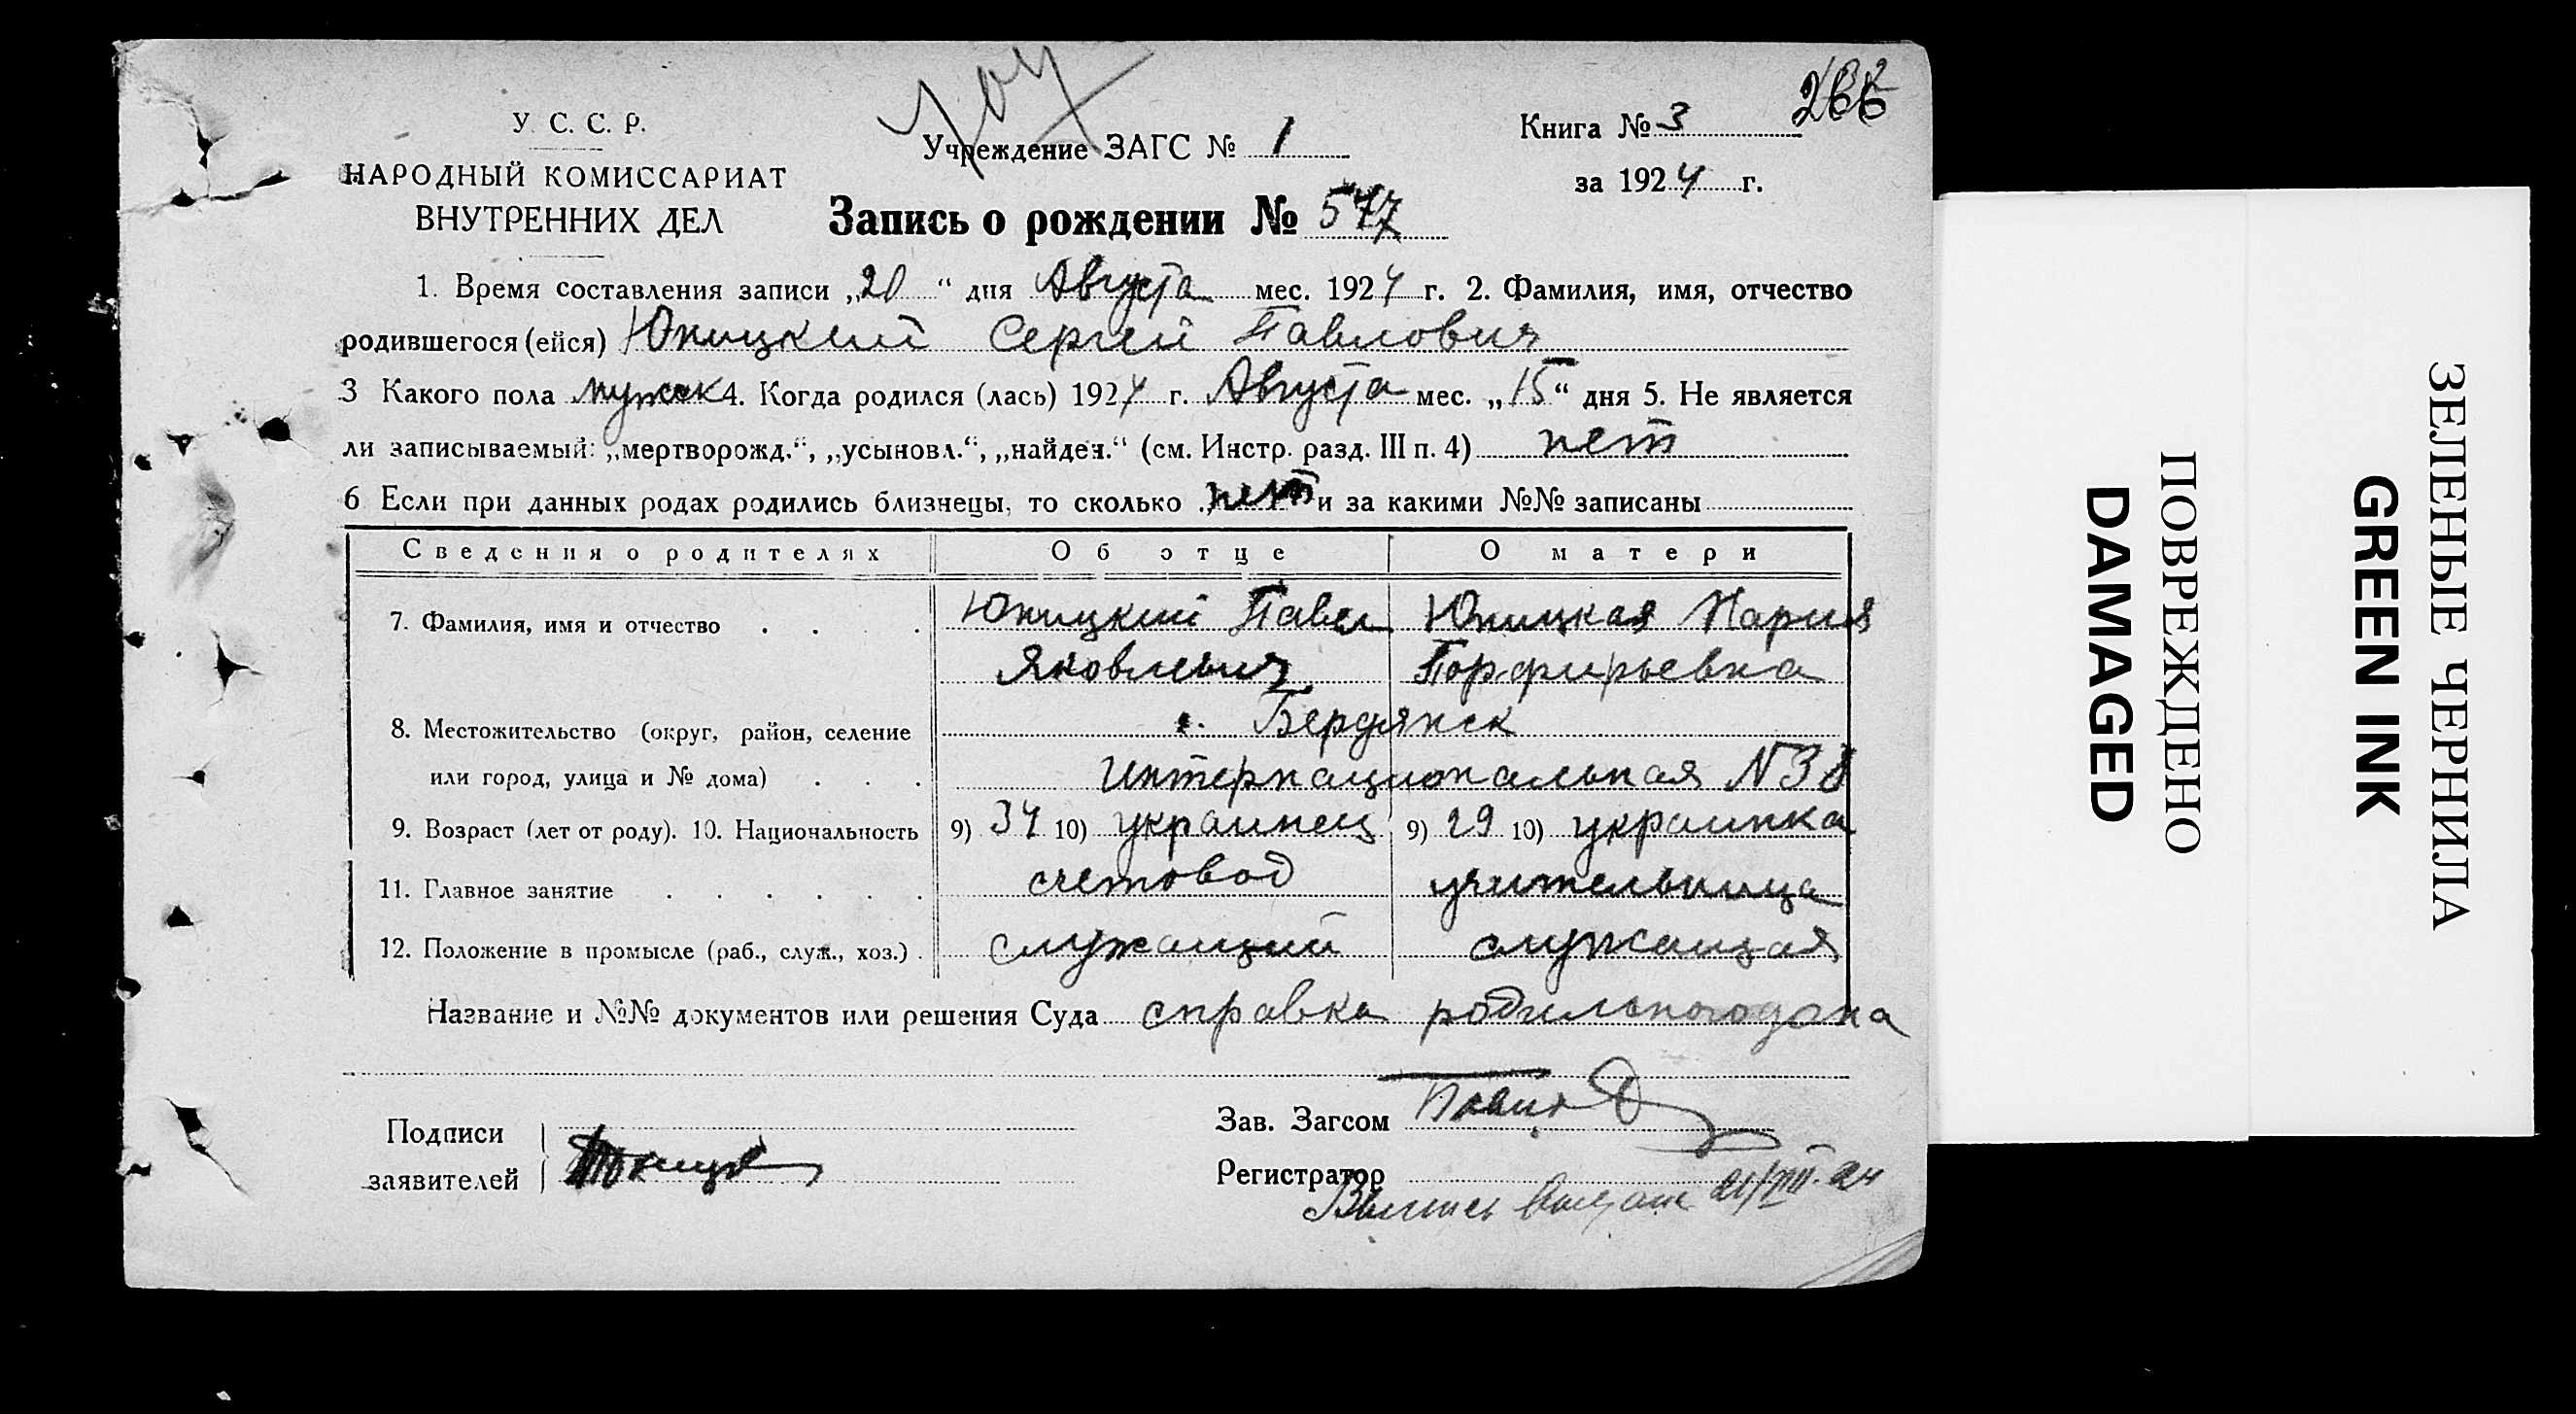 У. С. С. Р.
НАРОДНЫЙ КОМИССАРИАТ
ВНУТРЕННИХ ДЕЛ
Учреждение ЗАГС № 1
Книга № 3
за 1924 г.
Запись о рождении № 577
1. Время составления записи „20“ дня Августа мес. 1924 г. 2. Фамилия, имя, отчество
родившегося (ейся) Юницкий Сергей Павлович
3 Какого пола мужск 4. Когда родился (лась) 1924 г. Августа мес. „15“ дня 5. Не является
ли записываемый: „мертворожд.“, „усыновл.“, „найден.“ (см. Инстр. разд. III п. 4) нет
6 Если при данных родах родились близнецы, то сколько нет и за какими №№ записаны
Сведения о родителях Об отце О матери
7. Фамилия, имя и отчество . . . . Юницкий Павел Юницкая Мария
Яковлевич Порфирьевна
8. Местожительство (округ, район, селение г. Бердянск
или город, улица и № дома) . . . Интернациональная N 38
9. Возраст (лет от роду). 10. Национальность 9) 34 10) украинец 9) 29 10) украинка
11. Главное занятие . . . . . . счетовод учительница
12. Положение в промысле (раб., служ., хоз.) . служащий служащая
Название и №№ документов или решения Суда справка родильного дома
Подписи
заявителей
Зав. Загсом
Регистратор
Выпись выдана 21/VIII-24
ПОВРЕЖДЕНО
DAMAGED
ЗЕЛЕНЫЕ ЧЕРНИЛА
GREEN INK